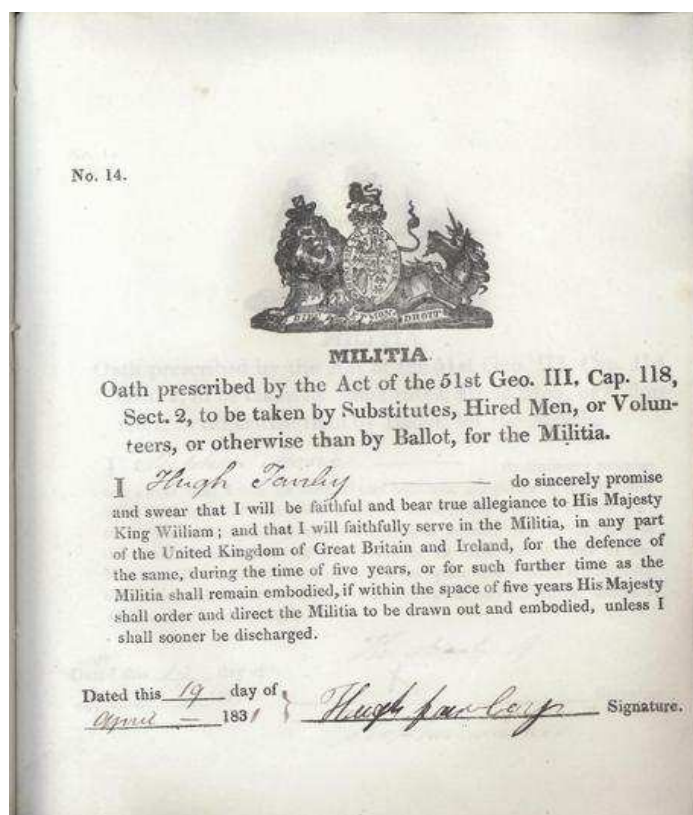 No. 14.
DIEU ET MON DROIT
MILITIA.
Oath prescribed by the Act of the 51st Geo. III. Cap. 118,
Sect. 2, to be taken by Substitutes, Hired Men, or Volun-
teers, or otherwise than by Ballot, for the Militia.
I Hugh do sincerely promise
and swear that I will be faithful and bear true allegiance to His Majesty
King Wiilliam; and that I will faithfully serve in the Militia, in any part
of the United Kingdom of Great Britain and Ireland, for the defence of
the same, during the time of five years, or for such further time as the
Militia shall remain embodied, if within the space of five years His Majesty
shall order and direct the Militia to be drawn out and embodied, unless I
shall sooner be discharged.
Dated this 19 day of
April 1831 Hugh Signature.